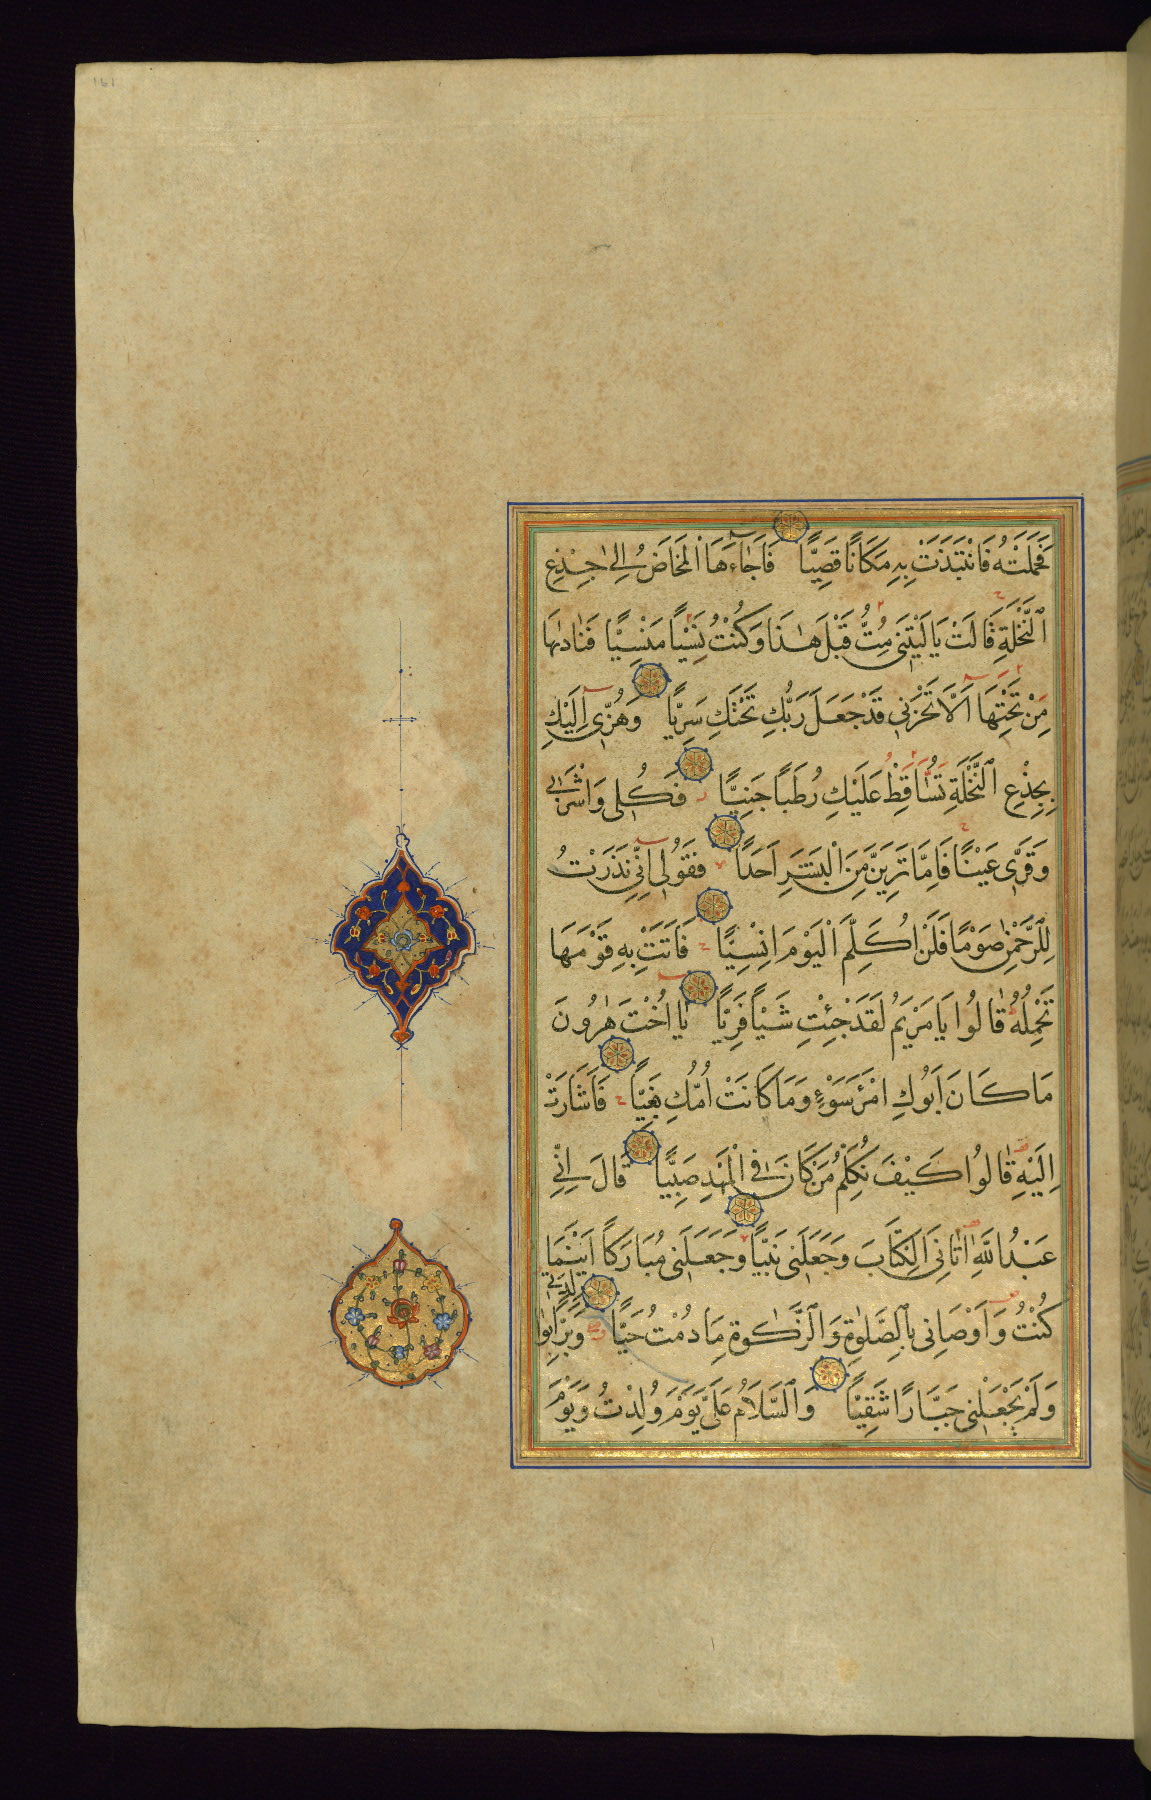 ١٩١
فَحَمَلَتْهُ فَانْتَبَذَتْ بِهِ مَكَانًا قَصِيًّا فَاَجَٓاءَهَا الْمَخَاضُ اِلٰى جِذْعِ
النَّخْلَةِ قَالَتْ يَا لَيْتَنِى مِتُّ قَبْلَ هٰذَا وَكُنْتُ نَسْيًا مَنْسِيًّا فَنَادٰيهَا
مِنْ تَحْتِهَٓا اَلَّا تَحْزَنِى قَدْ جَعَلَ رَبُّكِ تَحْتَكِ سَرِيًّا وَهُزِّٓى اِلَيْكِ
بِجِذْعِ النَّخْلَةِ تُسَاقِطْ عَلَيْكِ رُطَبًا جَنِيًّا فَكُلِى وَاشْرَبِى
وَقَرِّى عَيْنًا فَاِمَّا تَرَيِنَّ مِنَ الْبَشَرِ اَحَدًا فَقُولِٓى اِنِّى نَذَرْتُ
لِلرَّحْمٰنِ صَوْمًا فَلَنْ اُكَلِّمَ الْيَوْمَ اِنْسِيًّا فَاَتَتْ بِهِ قَوْمَهَا
تَحْمِلُهُ قَالُوا يَا مَرْيَمُ لَقَدْ جِئْتِ شَيْـًٔا فَرِيًّا يَٓا اُخْتَ هٰرُونَ
مَا كَانَ اَبُوكِ امْرَاَ سَوْءٍ وَمَا كَانَتْ اُمُّكِ بَغِيًّا فَاَشَارَتْ
اِلَيْهِ قَالُوا كَيْفَ نُكَلِّمُ مَنْ كَانَ فِى الْمَهْدِ صَبِيًّا قَالَ اِنِّى
عَبْدُ اللّٰهِ اٰتَانِىَ الْكِتَابَ وَجَعَلَنِى نَبِيًّا وَجَعَلَنِى مُبَارَكًا اَيْنَمَا
كُنْتُ وَاَوْصَانِى بِالصَّلٰوةِ وَالزَّكٰوةِ مَا دُمْتُ حَيًّا وَبَرًّا بِوَالِدَتِى
وَلَمْ يَجْعَلْنِى جَبَّارًا شَقِيًّا وَالسَّلَامُ عَلَىَّ يَوْمَ وُلِدْتُ وَيَوْمَ